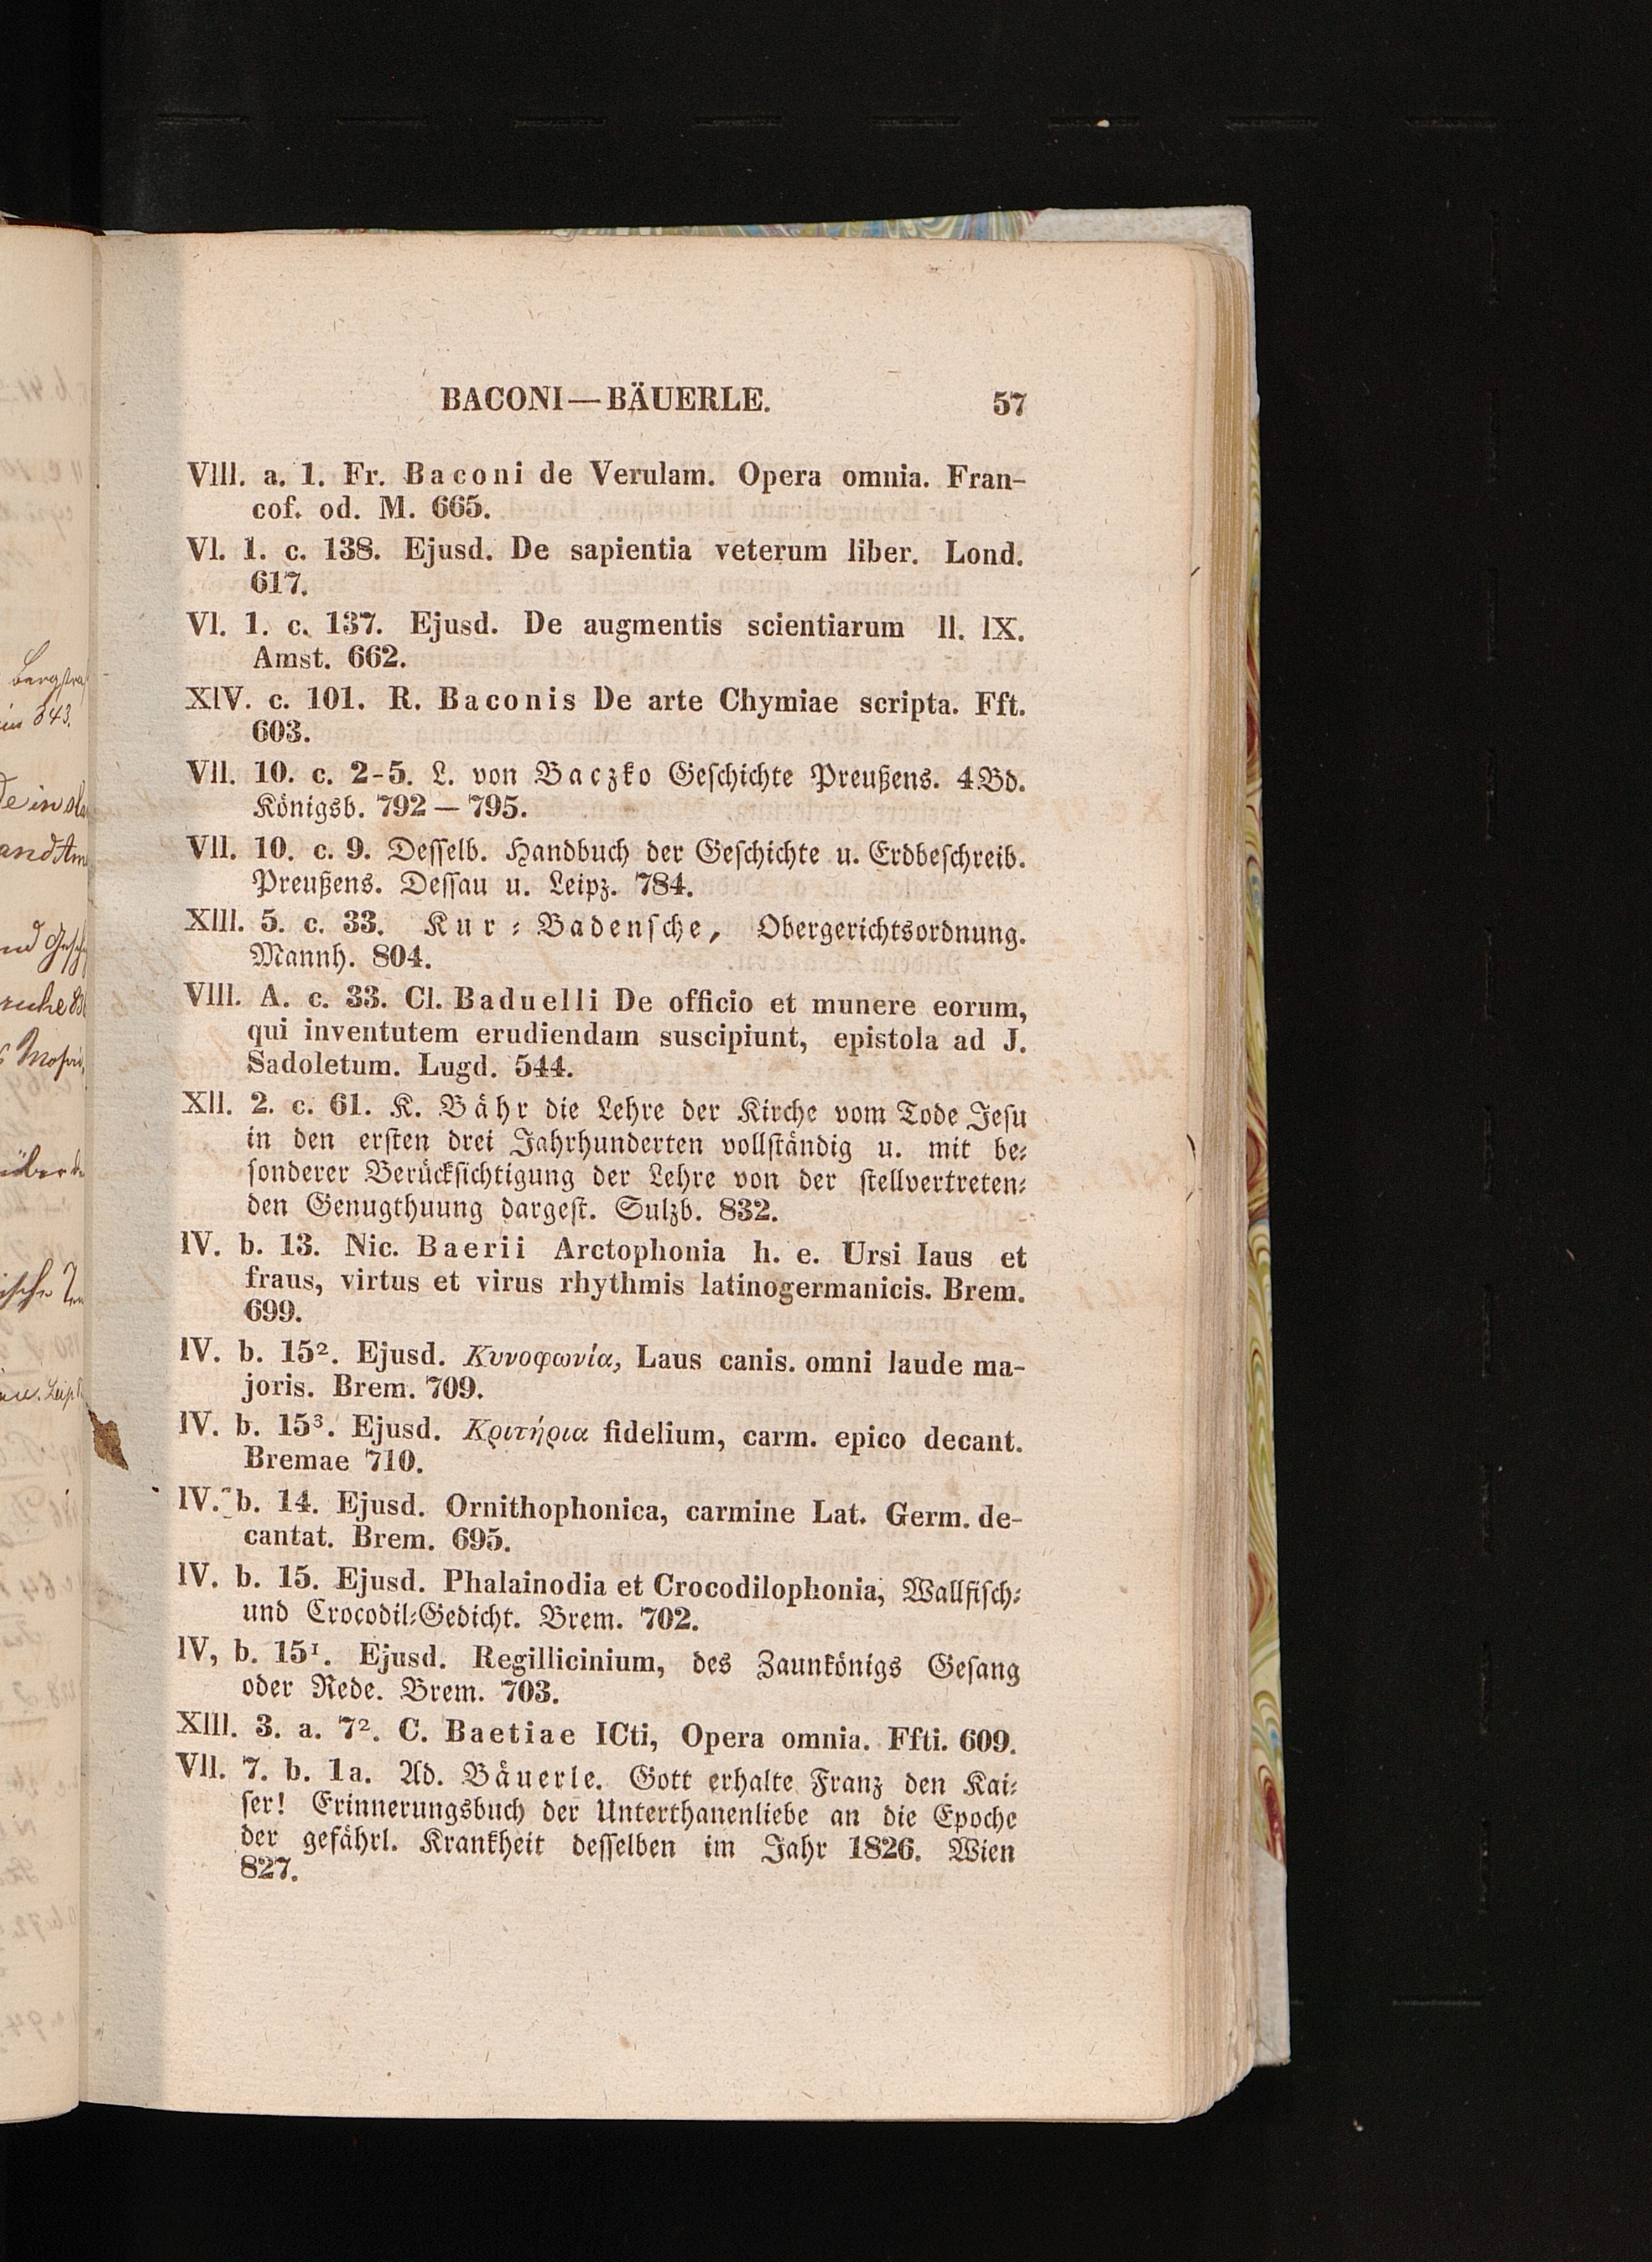 BACONI—BÄUERLE. 57
Vlll. a. 1. Fr. Baconi de Verulam. Opera omnia. Fran-
cof. od. M. 665.
Vl. 1. c. 138. Ejusd. De sapientia veterum liber. Lond.
617.
Vl. 1. c. 137. Ejusd. De augmentis scientiarum ll. lX.
Amst. 662.
XlV. c. 101. R. Baconis De arte Chymiae scripta. Fft.
603.
Vll. 10. c. 2-5. L. von Baczko Geschichte Preußens. 4 Bd.
Königsb. 792 — 795.
Vll. 10. c. 9. Desselb. Handbuch der Geschichte u. Erdbeschreib.
Preußens. Dessau u. Leipz. 784.
Xlll. 5. c. 33. Kur-Badensche, Obergerichtsordnung.
Mannh. 804.
Vlll. A. c. 33. Cl. Baduelli De officio et munere eorum,
qui inventutem erudiendam suscipiunt, epistola ad J.
Sadoletum. Lugd. 544.
Xll. 2. c. 61. K. Bähr die Lehre der Kirche vom Tode Jesu
in den ersten drei Jahrhunderten vollständig u. mit be-
sonderer Berücksichtigung der Lehre von der stellvertreten-
den Genugthuung dargest. Sulzb. 832.
lV. b. 13. Nic. Baerii Arctophonia h. e. Ursi laus et
fraus, virtus et virus rhythmis latinogermanicis. Brem.
699.
lV. b. 15². Ejusd. Κυνοφωνία, Laus canis. omni laude ma-
joris. Brem. 709.
lV. b. 15³. Ejusd. Κριτήρια fidelium, carm. epico decant.
Bremae 710.
lV. b. 14. Ejusd. Ornithophonica, carmine Lat. Germ. de-
cantat. Brem. 695.
lV. b. 15. Ejusd. Phalainodia et Crocodilophonia, Wallfisch-
und Crocodil-Gedicht. Brem. 702.
lV, b. 15¹. Ejusd. Regillicinium, des Zaunkönigs Gesang
oder Rede. Brem. 703.
Xlll. 3. a. 7². C. Baetiae ICti, Opera omnia. Ffti. 609.
Vll. 7. b. 1a. Ad. Bäuerle. Gott erhalte Franz den Kai-
ser! Erinnerungsbuch der Unterthanenliebe an die Epoche
der gefährl. Krankheit desselben im Jahr 1826. Wien
827.